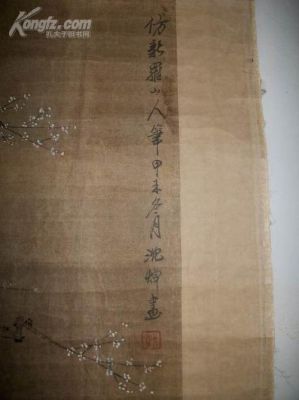 Kongfz.com
孔夫子旧书网
仿新羅山人筆甲未冬月沈焯畫